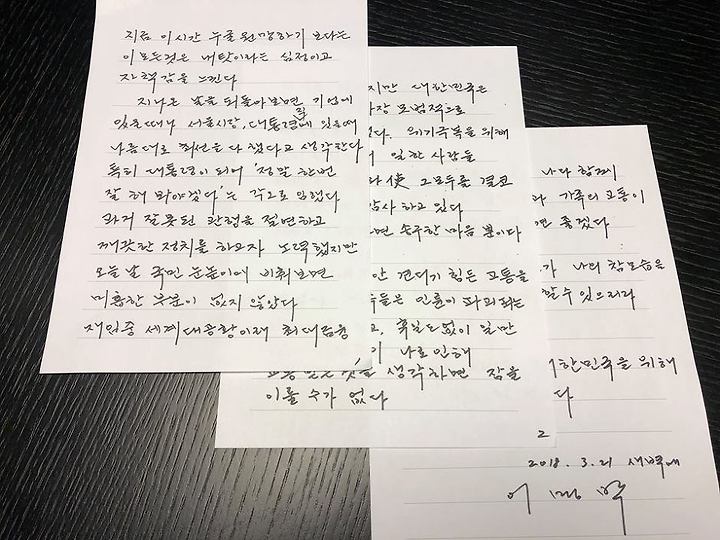 지금 이 시간 누굴 원망하기 보다는
이 모든것은 내탓이라는 심정이고
자책감을 느낀다
지나온 날을 되돌아보면 기업에
있을때나 서울시장, 대통령직에 있을때
나름대로 최선을 다했다고 생각한다
특히 대통령이 되어 '정말 한번
잘 해 봐야겠다'는 각오로 임했다
과거 잘못된 관행을 절연하고
깨끗한 정치를 하고자 노력했지만
오늘 날 국민 눈높이에 비춰보면
미흡한 부분이 없지 않았다
재임중 세계대공황이래 최대금융
지만 대한민국은
가장 모범적으로
다. 위기극복을 위해
같이 일한 사람들
使 그모두를 결코
감사하고 있다
면 송구한 마음 뿐이다
안 견디기 힘든 고통을
들은 인륜이 파괴되는
고, 휴일도 없이 일만
나로 인해
고통받는 것을 생각하면 잠을
이룰 수가 없다
2
나와 함께
가족의 고통이
면 좋겠다
가 나의 참모습을
할 수 있으리라
대한민국을 위해
다
2018. 3. 21 새벽에
이명박